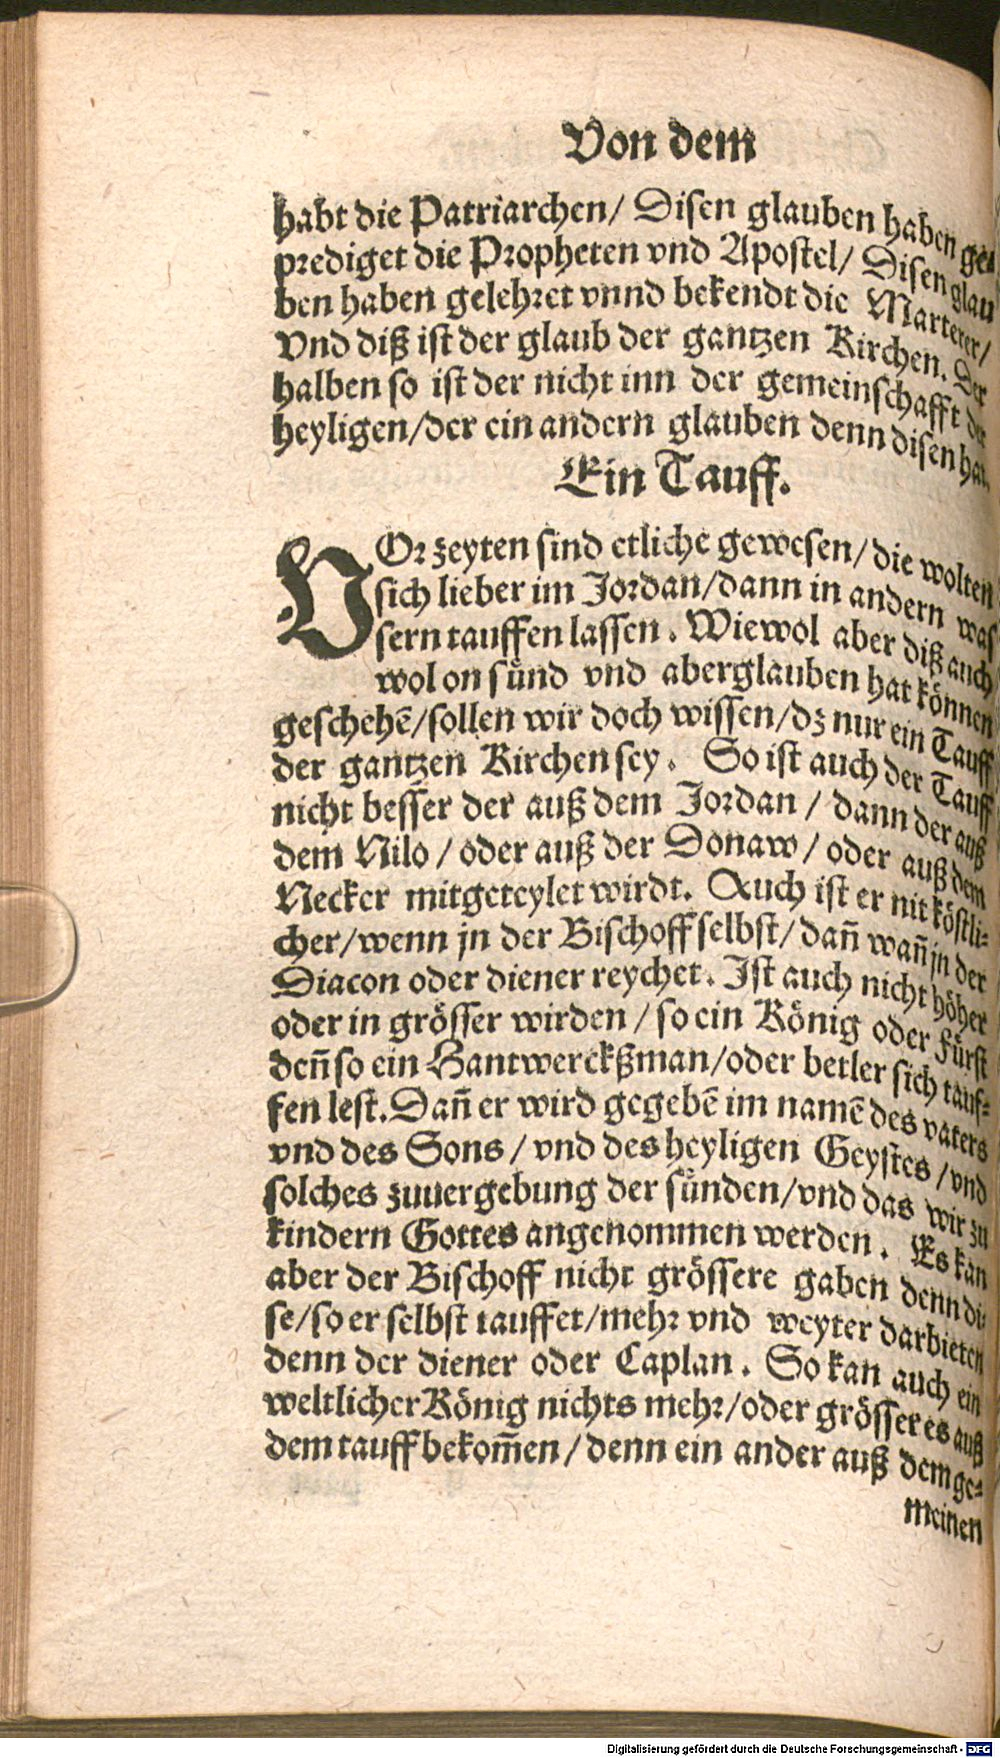 Von dem
habt die Patriarchen/ Disen glauben haben ge-
prediget die Propheten vnd Apostel/ Disen glau
ben haben gelehret vnnd bekendt die Marterer/
Vnd diß ist der glaub der gantzen Kirchen. Der
halben so ist der nicht inn der gemeinschafft der
heyligen/der ein andern glauben denn disen hat.
Ein Tauff.
VOr zeyten sind etliche gewesen/die wolten
sich lieber im Jordan/dann in andern was
sern tauffen lassen. Wiewol aber diß auch
wol on sünd vnd aberglauben hat können
geschehẽ/sollen wir doch wissen/dz nur ein Tauff
der gantzen Kirchen sey. So ist auch der Tauff
nicht besser der auß dem Jordan / dann der auß
dem Nilo / oder auß der Donaw / oder auß dem
Necker mitgeteylet wirdt. Auch ist er nit köstli-
cher/wenn jn der Bischoff selbst/dañ wañ jn der
Diacon oder diener reychet. Ist auch nicht höher
oder in grösser wirden / so ein König oder Fürst
deñ so ein Hantwerckßman/oder betler sich tauf-
fen lest. Dañ er wird gegebẽ im namẽ des vaters
vnd des Sons / vnd des heyligen Geystes /vnd
solches zuuergebung der sünden/vnd das wir zu
kindern Gottes angenommen werden. Es kan
aber der Bischoff nicht grössere gaben denn di-
se/so er selbst tauffet/mehr vnd weyter darbieten
denn der diener oder Caplan. So kan auch ein
weltlicher König nichts mehr/oder grösser es auß
dem tauff bekom̃en/denn ein ander auß dem ge-
meinen
Digitalisierung gefördert durch die Deutsche Forschungsgemeinschaft - DFG